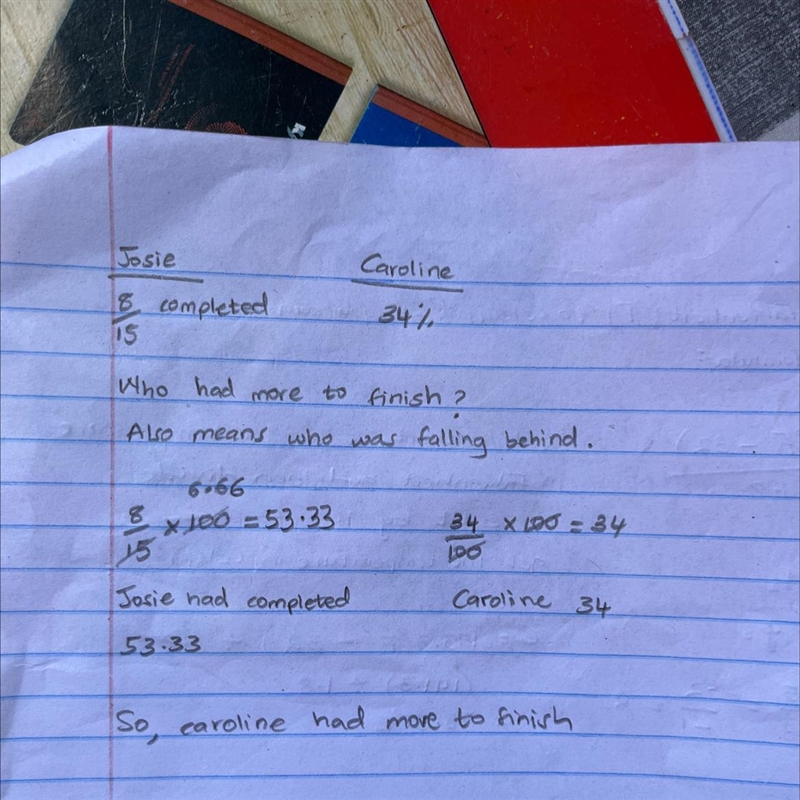 Josie Caroline
8/15 completed 34%
Who had more to finish?
Also means who was falling behind.
6.66
8/15 × 100 = 53.33 34/100 × 100 = 34
Josie had completed Caroline 34
53.33
So, caroline had more to finish